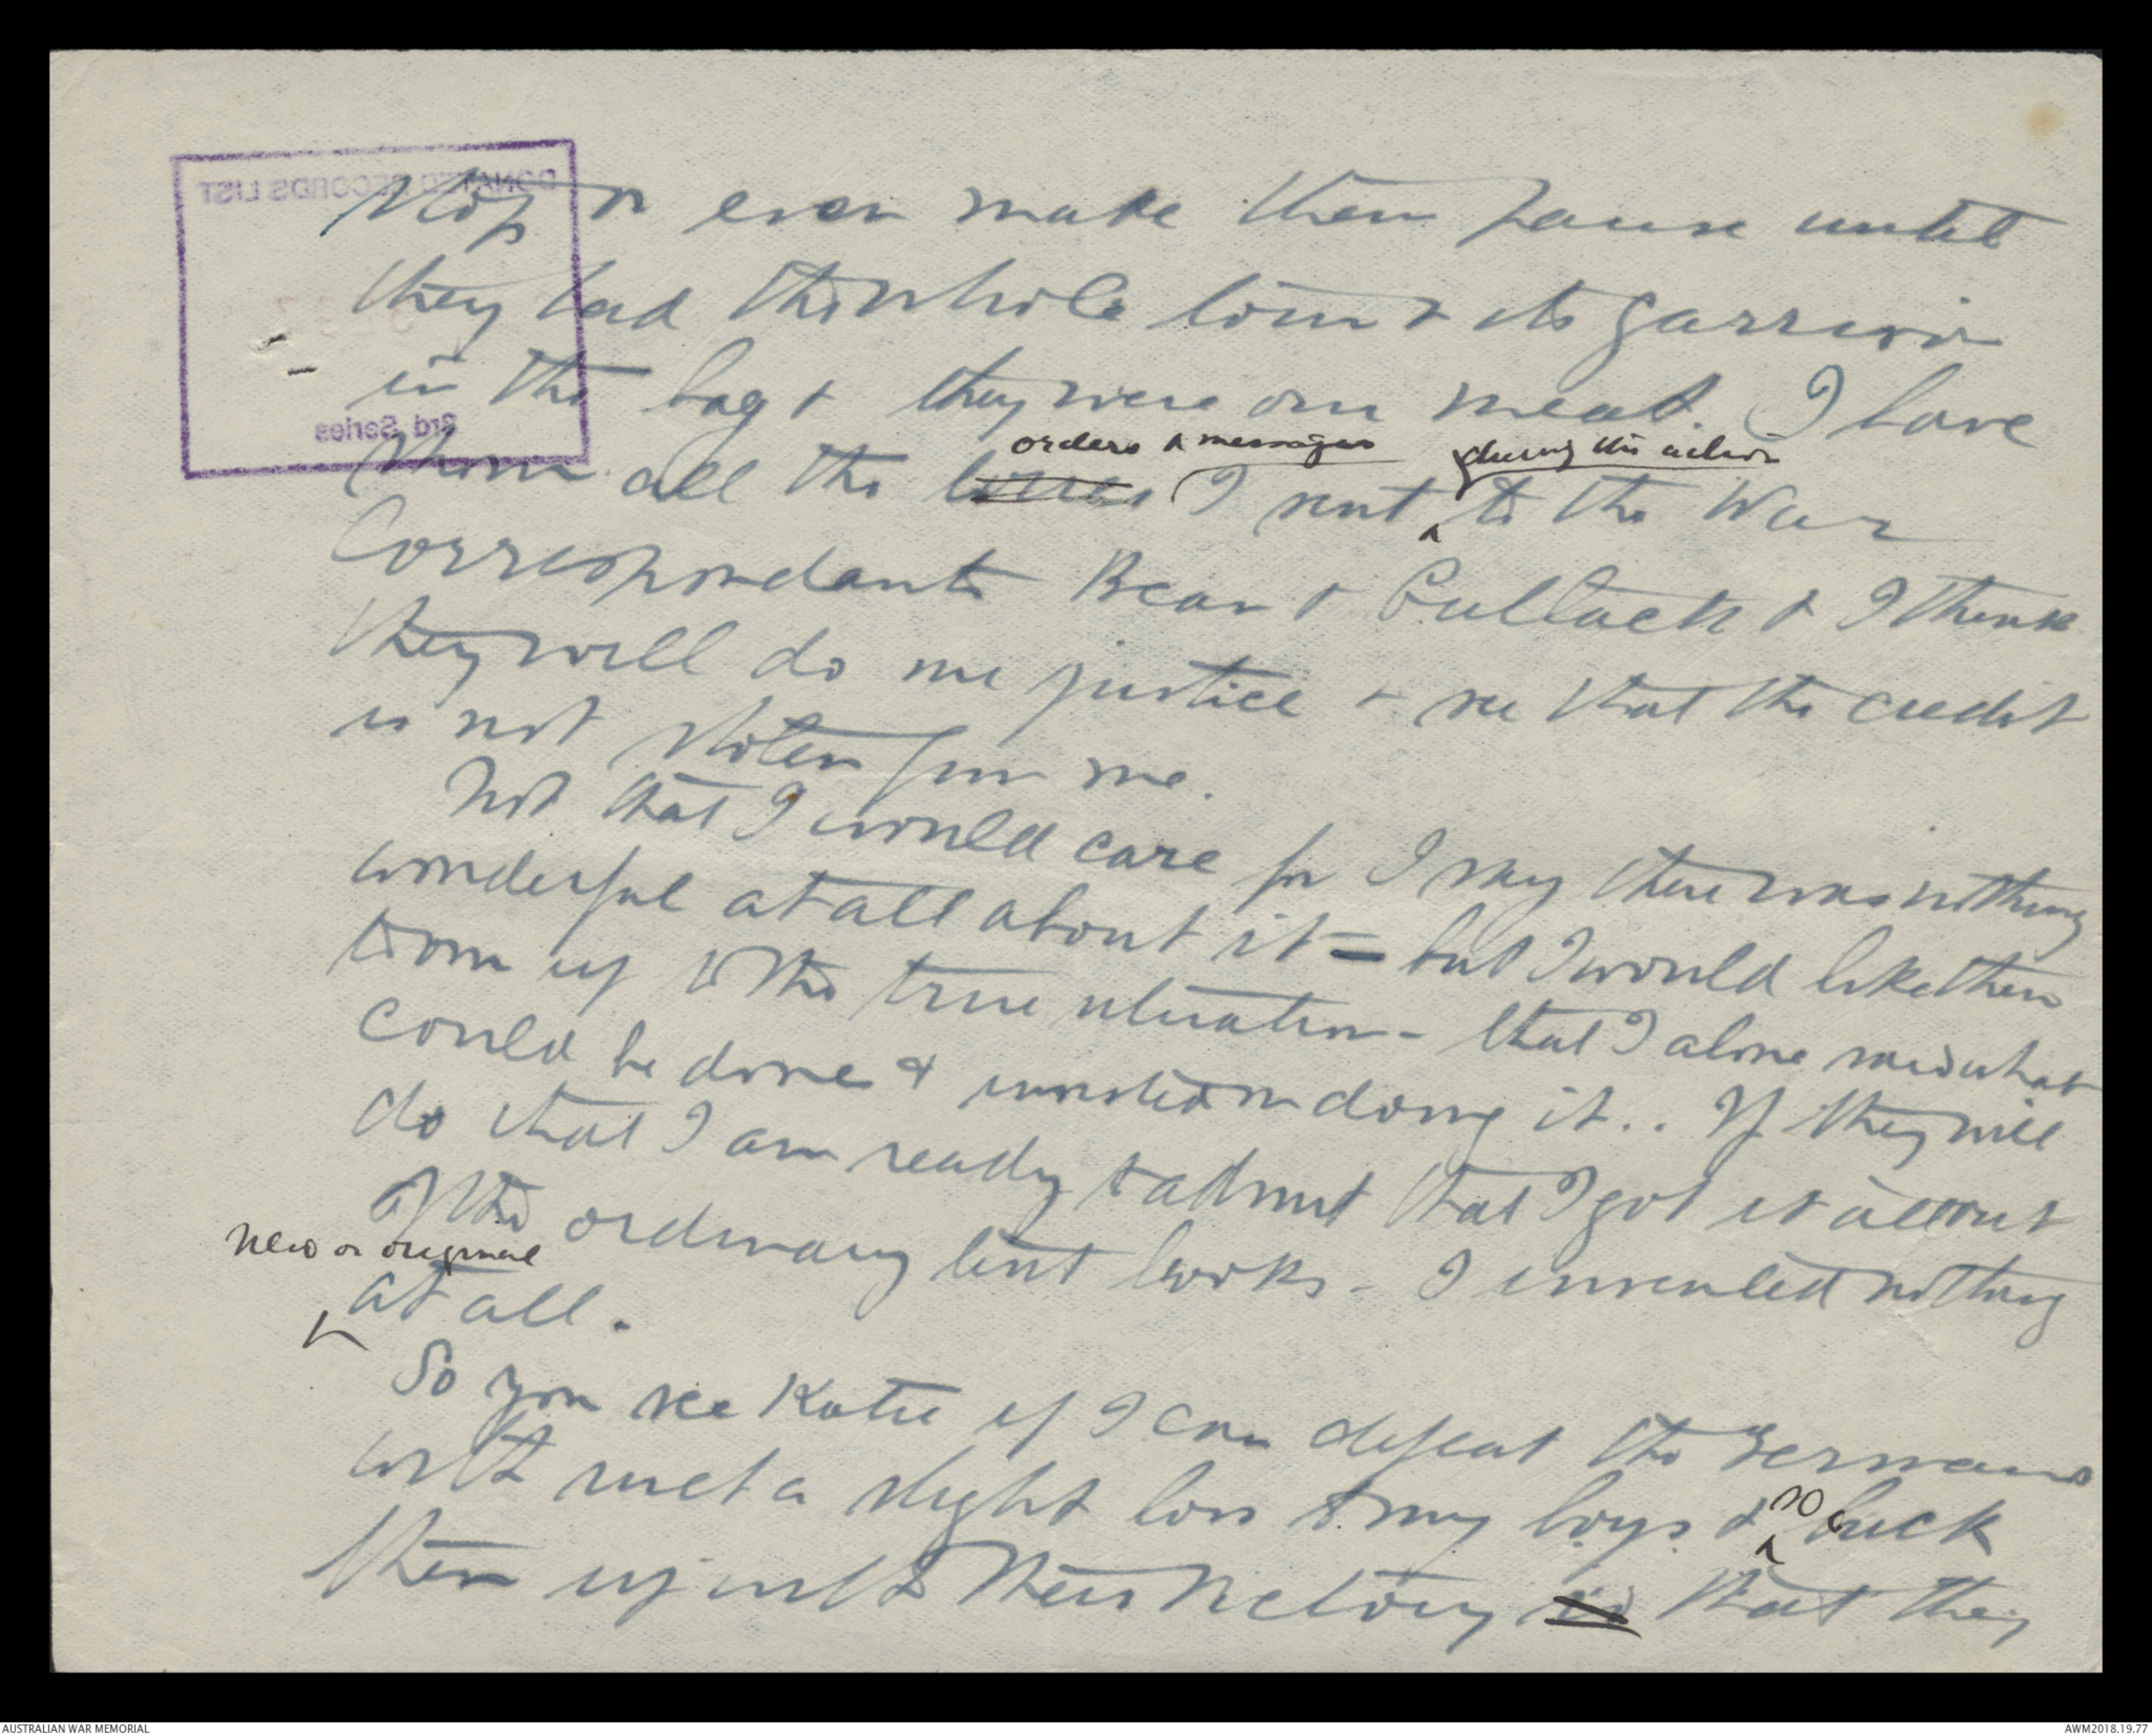 DONATED RECORDS LIST
3rd Series
stop or even make them pause until
they had the whole town & its garrison
in the bag & they were our meat. I have
orders & messages during the action
shown all the I sent to the War
Correspondants Bean & Cutlack & I think
they will do me justice & see that the credit
is not stolen from me.
Not that I would care for I say there was nothing
wonderful at all about it = but I would like them
to own up to the true situation - that I alone said what
could be done & insisted on doing it.. If they will
do that I am ready to admit that I got it all out
of the ordinary text books - I invented nothing
new or original
at all.
So you see Katie if I can defeat the Germans
with such a slight loss to my boys & so buck
them up with their Victory so that they
AUSTRALIAN WAR MEMORIAL
AWM2018.19.77